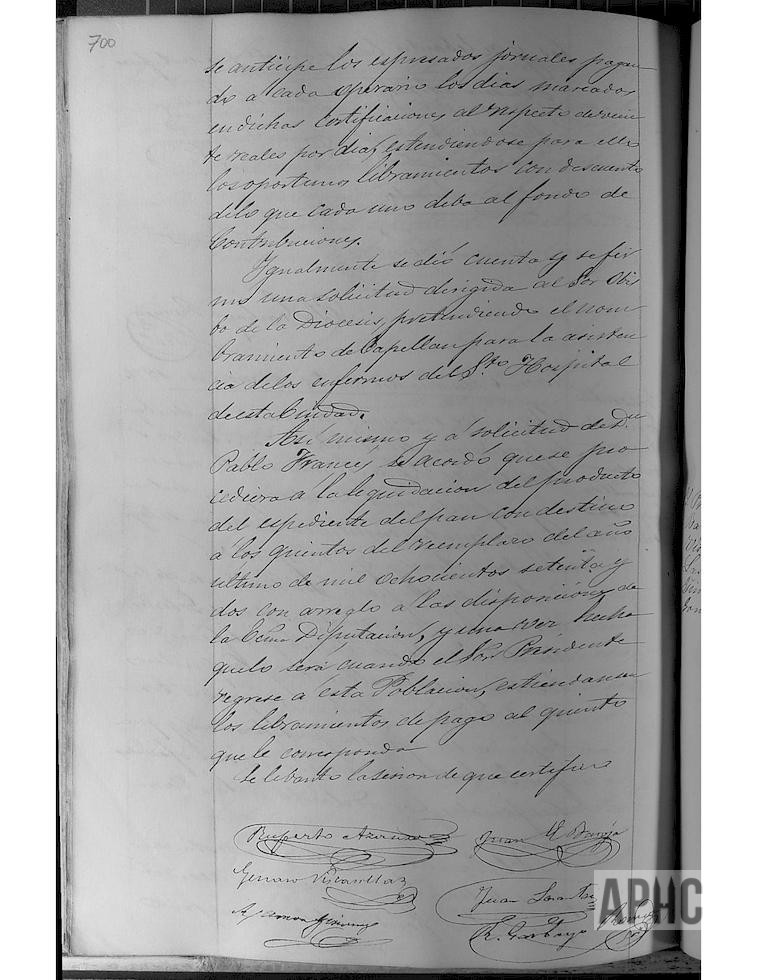 700
se anticipe los espresados jornales pagan
do a cada operario los dias marcados
en dichas certificaciones al respecto de vein
te reales por dia, estendiendose para ello
los oportunos libramientos con descuento
de lo que cada uno deba al fondo de
Contribuciones.
Igualmente se dió cuenta y se fir
mo una solicitud dirigida al Sor Obis
po de la Diocesis, pretendiendo el nom
bramiento de Capellan para la asisten
cia de los enfermos del Sto Hospital
de esta Ciudad.
Asi mismo y á solicitud de Dn
Pablo Francés, se acordó que se pro
cediera a la liquidacion del producto
del espediente del pan con destino
a los quintos del reemplazo del año
ultimo de mil ochocientos setenta y
dos con arreglo a las disposiciones de
la Ecma Diputacion, y una vez hecha
que lo será cuando el Sor Presidente
regrese á esta Poblacion, estiendanse
los libramientos de pago al quinto
que le corresponda
Se levanto la sesion de que certifico
Ruperto Azarusa
Juan
Genaro
Juan
Ramon Gimenez
R. Garbayo
APHC